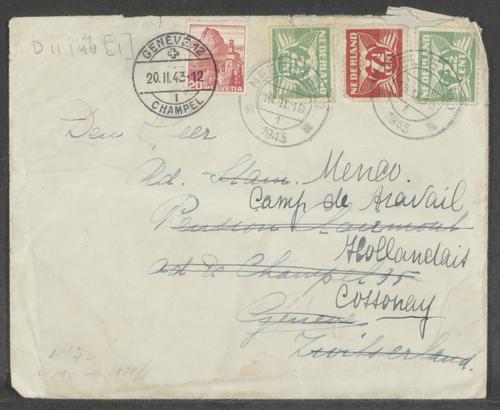 D III 46 [1]
GENÈVE 12
20.II.43-12
CHAMPEL
20 HELVETIA
NEDERLAND
7½ CENT
NEDERLAND
1943
1943
Den Heer
Ad. Stam. Menco.
Camp de travail
Pension Clairmont
Hollandais
Av de Champel 35
Cossonay
Genève
Zwitserland.